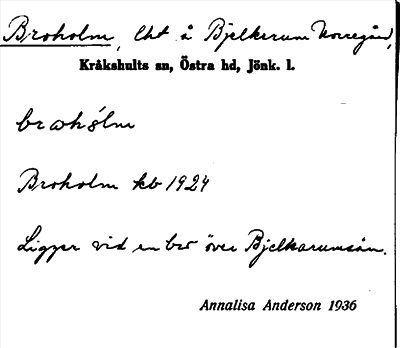 Broholm, lht å Bjelkerum Norregård,
Kråkshults sn, Östra hd, Jönk. l.
brωhólm
Broholm kb 1924
Ligger vid en bro över Bjelkarumsån.
Annalisa Anderson 1936